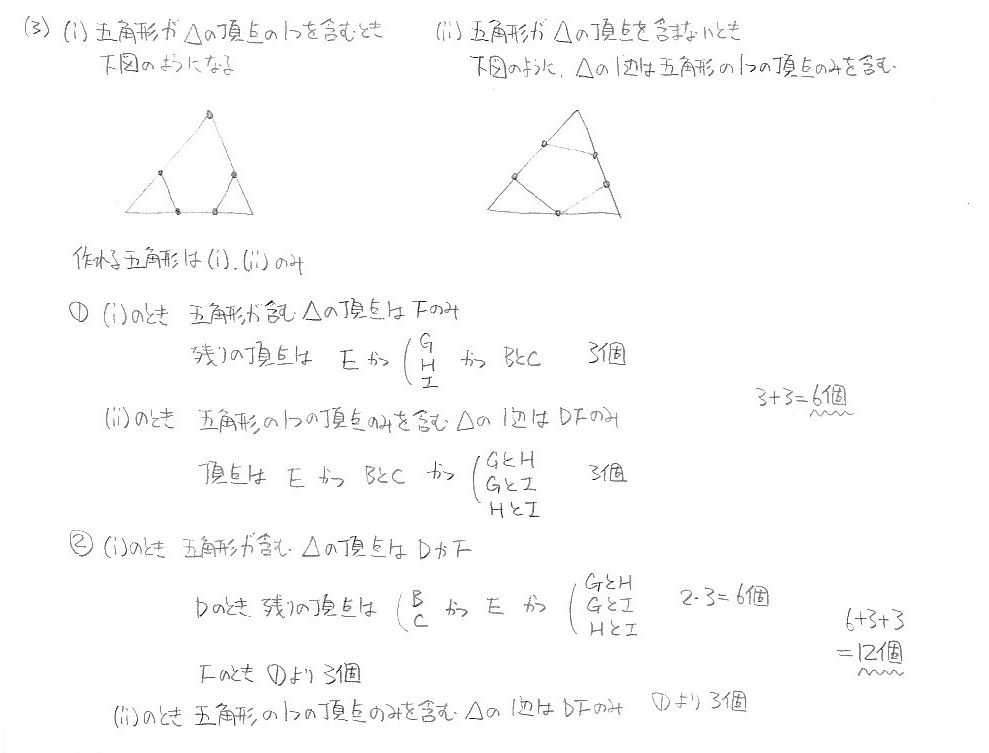 (3) (i) 五角形が△の頂点の1つを含むとき
下図のようになる
(ii) 五角形が△の頂点を含まないとき
下図のように、△の1辺は五角形の1つの頂点のみを含む
作れる五角形は(i).(ii)のみ
① (i)のとき 五角形が含む△の頂点はFのみ
残りの頂点は Eかつ (G H I かつ BとC 3個
(ii)のとき 五角形の1つの頂点のみを含む△の1辺はDFのみ
頂点は Eかつ BとC かつ (GとH GとI HとI 3個
3+3=6個
② (i)のとき 五角形が含む△の頂点はDかF
Dのとき 残りの頂点は (B C かつ E かつ (GとH GとI HとI 2・3=6個
Fのとき ①より3個
(ii)のとき 五角形の1つの頂点のみを含む△の1辺はDFのみ ①より3個
6+3+3
=12個